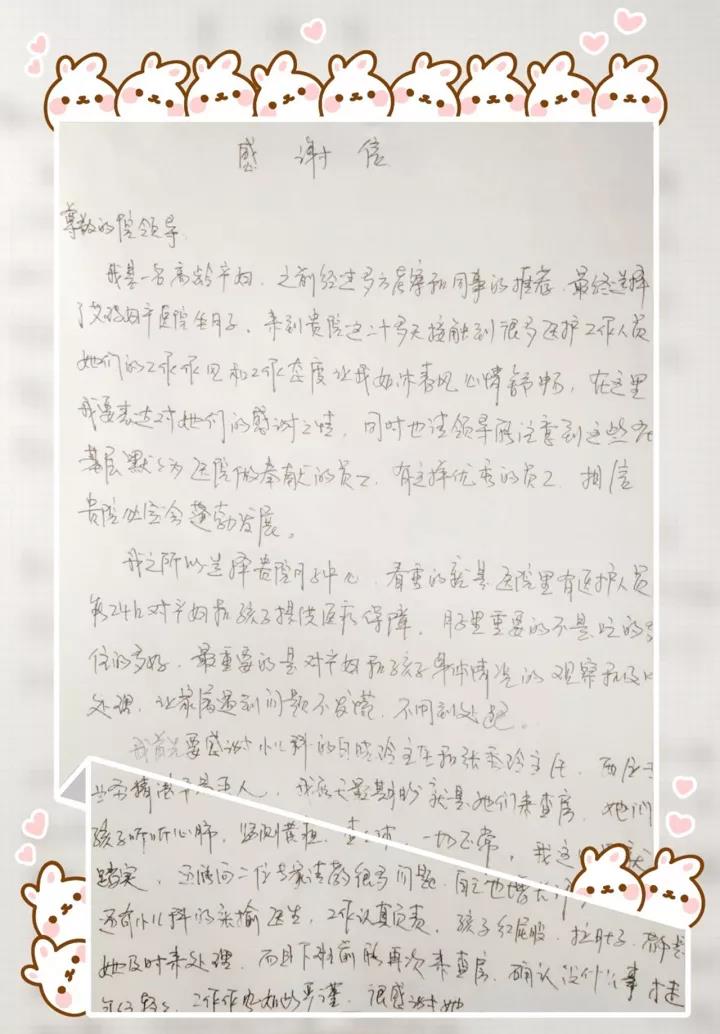 感谢信
尊敬的院领导
我是一名高龄产妇,之前经过多方考察和同事的推荐,最终选择
了艾玛妇产医院坐月子,来到贵院这二十多天接触到很多医护工作人员
她们的工作作风和工作态度让我如沐春风心情舒畅,在这里
我要表达对她们的感谢之情,同时也请领导能注意到这些在
基层默默为医院做奉献的员工,有这样优秀的员工,相信
贵院必定会蓬勃发展。
我之所以选择贵院月子中心,看重的就是医院里有医护人员
每24h对产妇和孩子提供医疗保障,月子里重要的不是吃的多
住的多好,最重要的是对产妇和孩子身体情况的观察和及时
处理,让家属遇到问题不发慌,不用到处跑。
我首先要感谢小儿科的主任和张主任,两位主
任 人,我每天最期盼就是她们来查房,她们
孩子听听心肺,监测黄疸,一切正常,我这
踏实,还能向二位专家请教很多问题,自己也增长
还有小儿科的医生,工作认真负责,孩子红屁股,拉肚子,都是
她及时来处理,而且下班前能再次来查房,确认没什么事才走
工作作风如此严谨,很感谢她